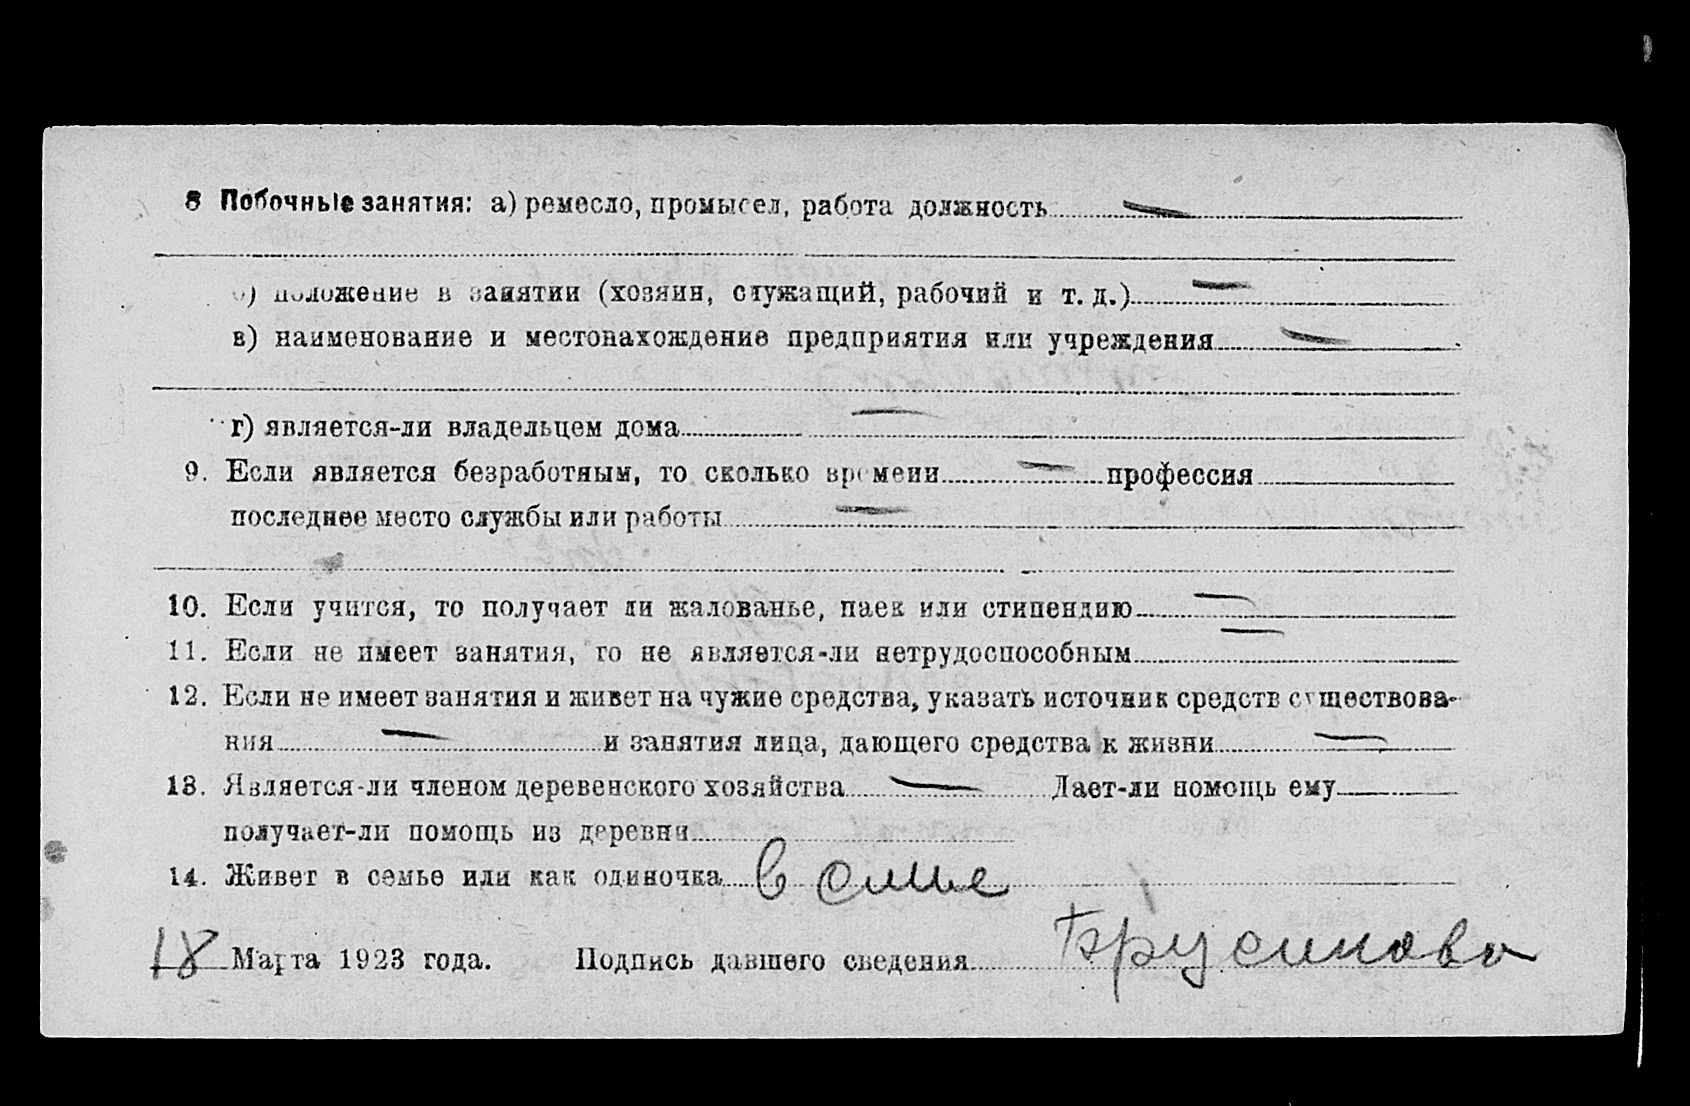 8 Побочные занятия: а) ремесло, промысел, работа должность —
б) положение в занятии (хозяин, служащий, рабочий и т. д.) —
в) наименование и местонахождение предприятия или учреждения —
г) является-ли владельцем дома —
9. Если является безработным, то сколько времени — профессия
последнее место службы или работы —
10. Если учится, то получает ли жалованье, паек или стипендию —
11. Если не имеет занятия, то не является-ли нетрудоспособным —
12. Если не имеет занятия и живет на чужие средства, указать источник средств существова-
ния — и занятия лица, дающего средства к жизни —
13. Является-ли членом деревенского хозяйства — Дает-ли помощь ему
получает-ли помощь из деревни
14. Живет в семье или как одиночка в семье
18 Марта 1923 года. Подпись давшего сведения Брусилова